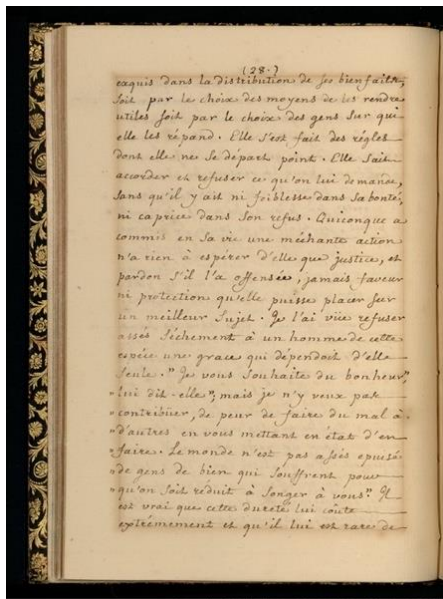 (28.)
exquis dans la distribution de ses bienfaits,
soit par le choix des moyens de les rendre
utiles soit par le choix des gens sur qui
elle les répand. Elle s'est fait des régles
dont elle ne se départ point. Elle sait
acorder et refuser ce qu'on lui demande,
sans qu'il y ait ni foiblesse dans sa bonté,
ni caprice dans son refus. Quiconque a
commis en sa vie une méchante action
n'a rien à espérer d'elle que justice, et
pardon s'il l'a offensée, jamais faveur
ni protection qu'elle puisse placer sur
un meilleur sujet. Je l'ai vüe refuser
assés séchement à un homme de cette
espéce une grace qui dépendoit d'elle
seule. "Je vous souhaite du bonheur,"
"lui dit-elle", mais je n'y veux pas
"contribüer, de peur de faire du mal à
"d'autres en vous mettant en état d'en
"faire. Le monde n'est pas assés épuisé
"de gens de bien qui souffrent pour
"qu'on soit réduit à songer à vous." Il
est vrai que cette dureté lui coûte
extrémement et qu'il lui est rare de